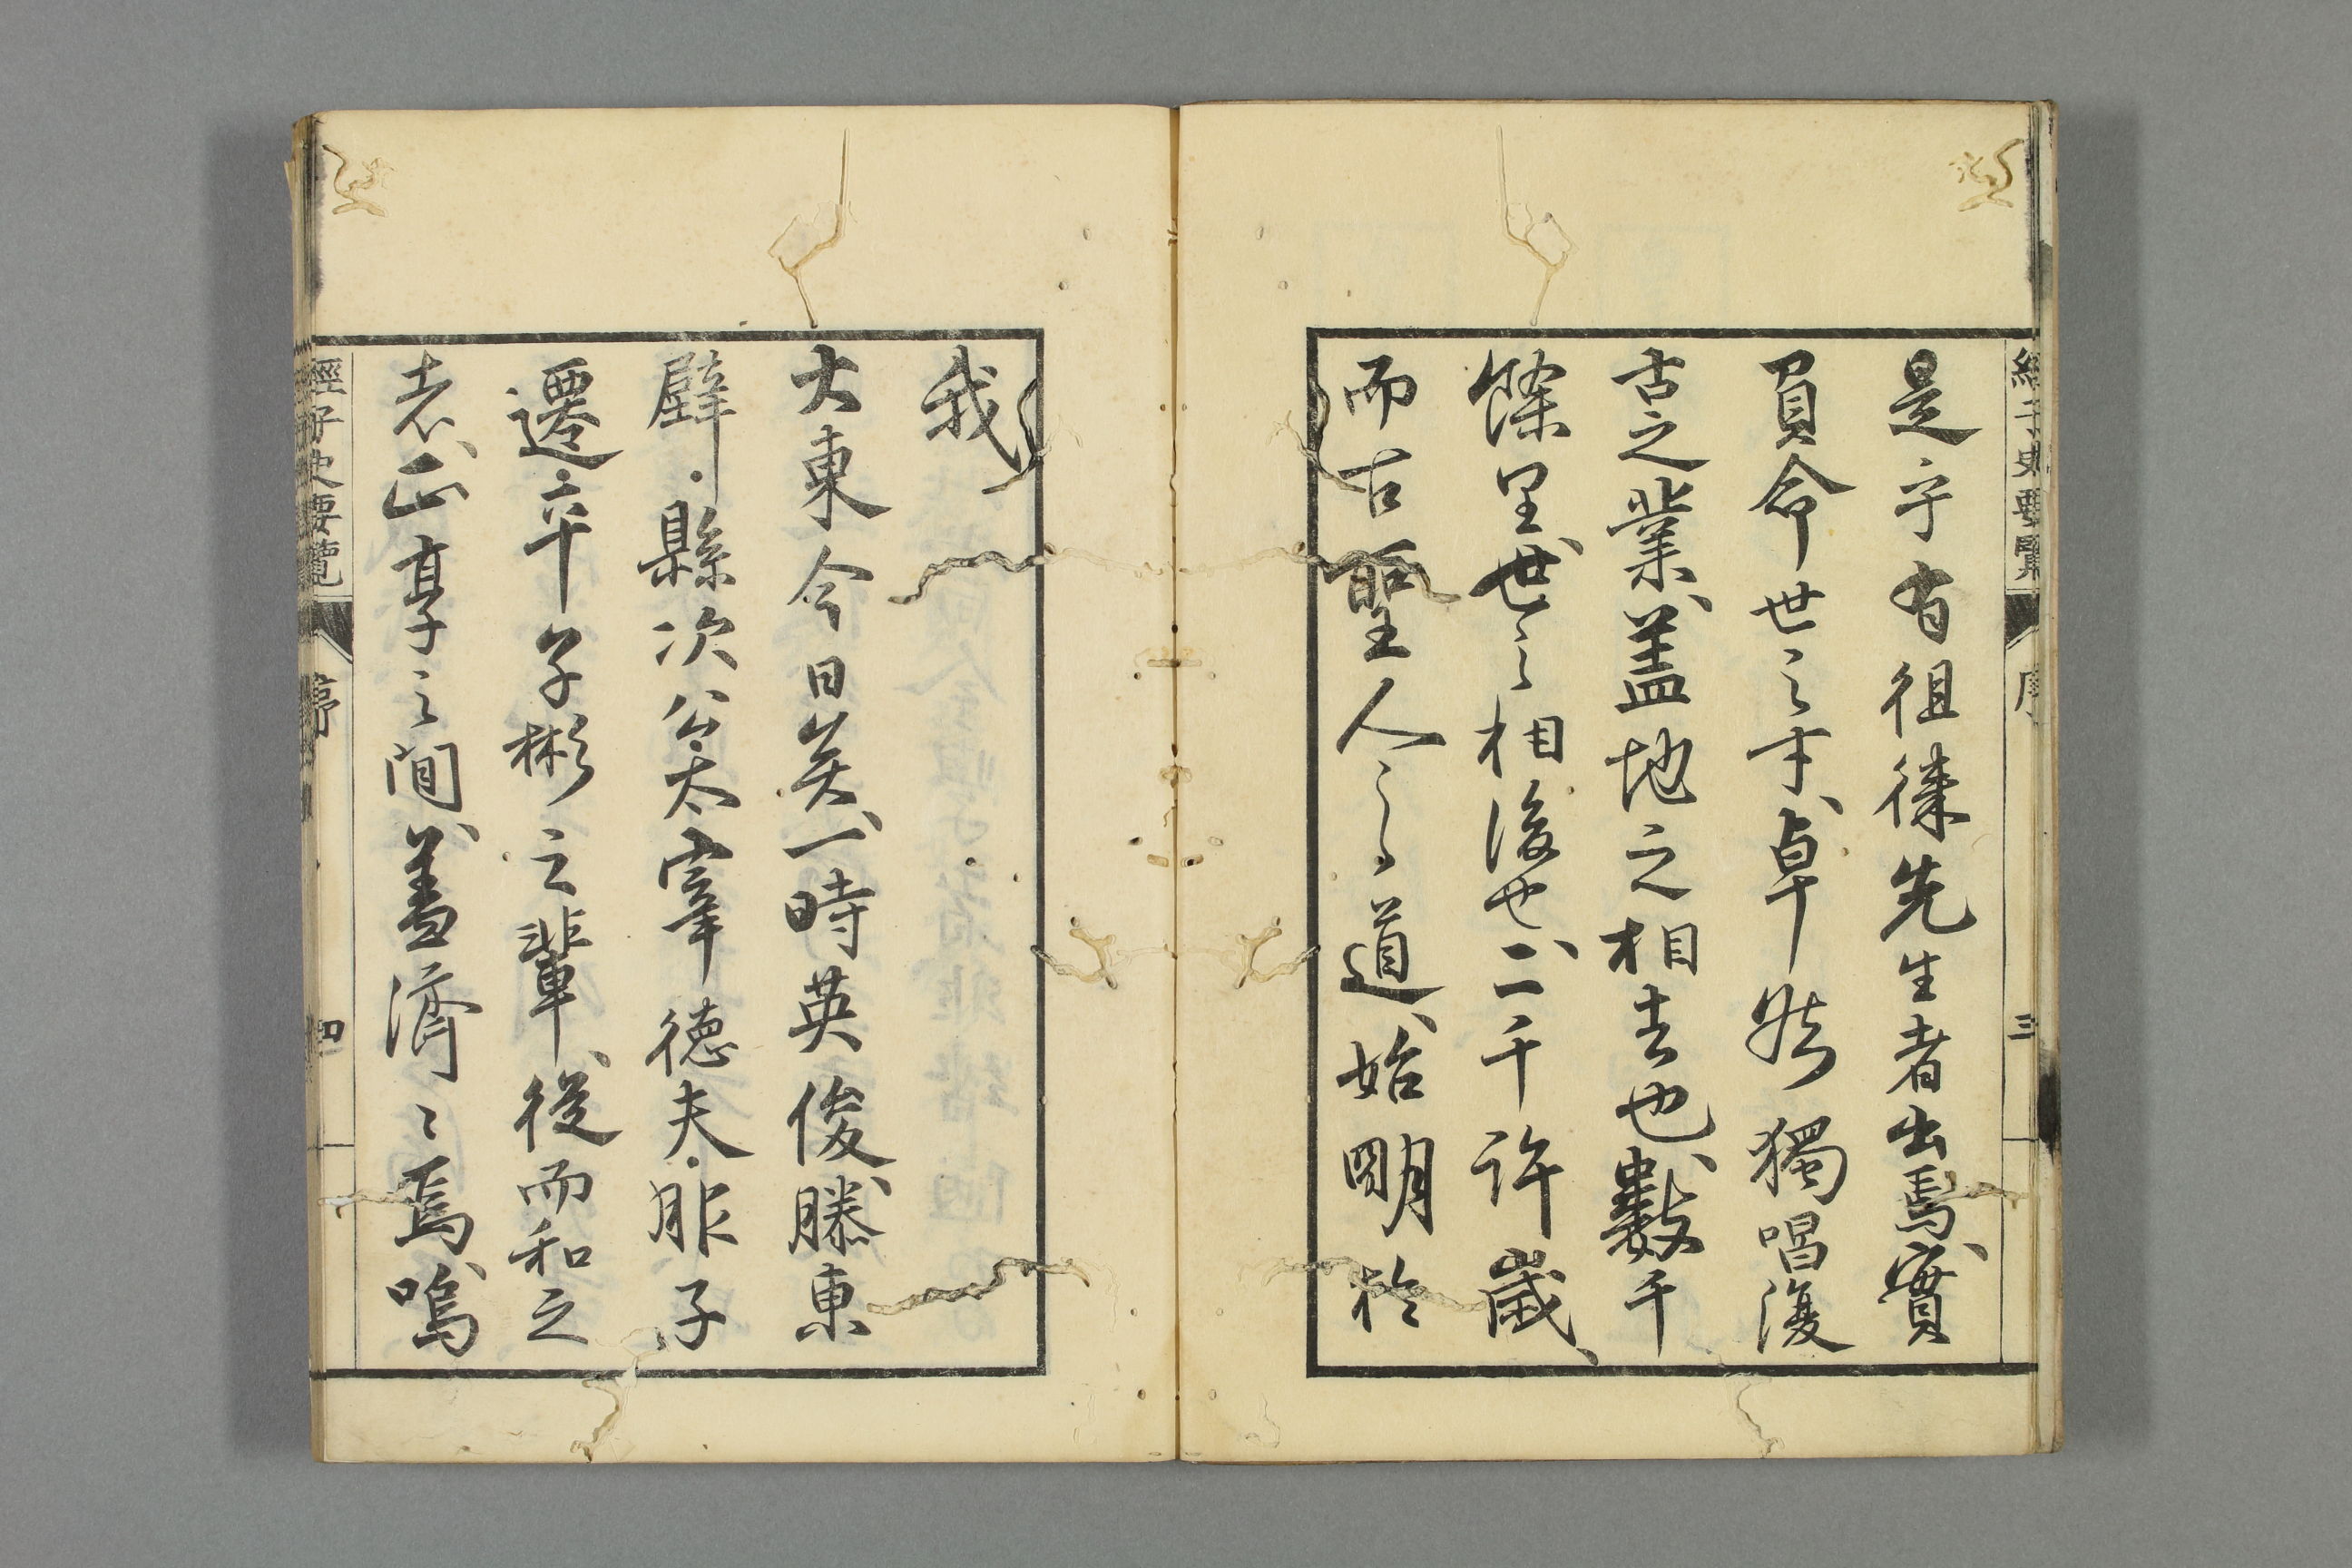 經子史要覽 序 三
是乎有徂徠先生者出焉、實
負命世之才、卓然獨唱復
古之業、盖地之相去也、數千
餘里、世之相後也、二千許歲、
而古聖人之道、始明於
我
大東今日矣、一時英俊、滕東
壁・縣次公・太宰德夫・服子
遷・平子彬之輩、從而和之
志、正享之間、盖濟〻焉、嗚
經子史要覽 序 四